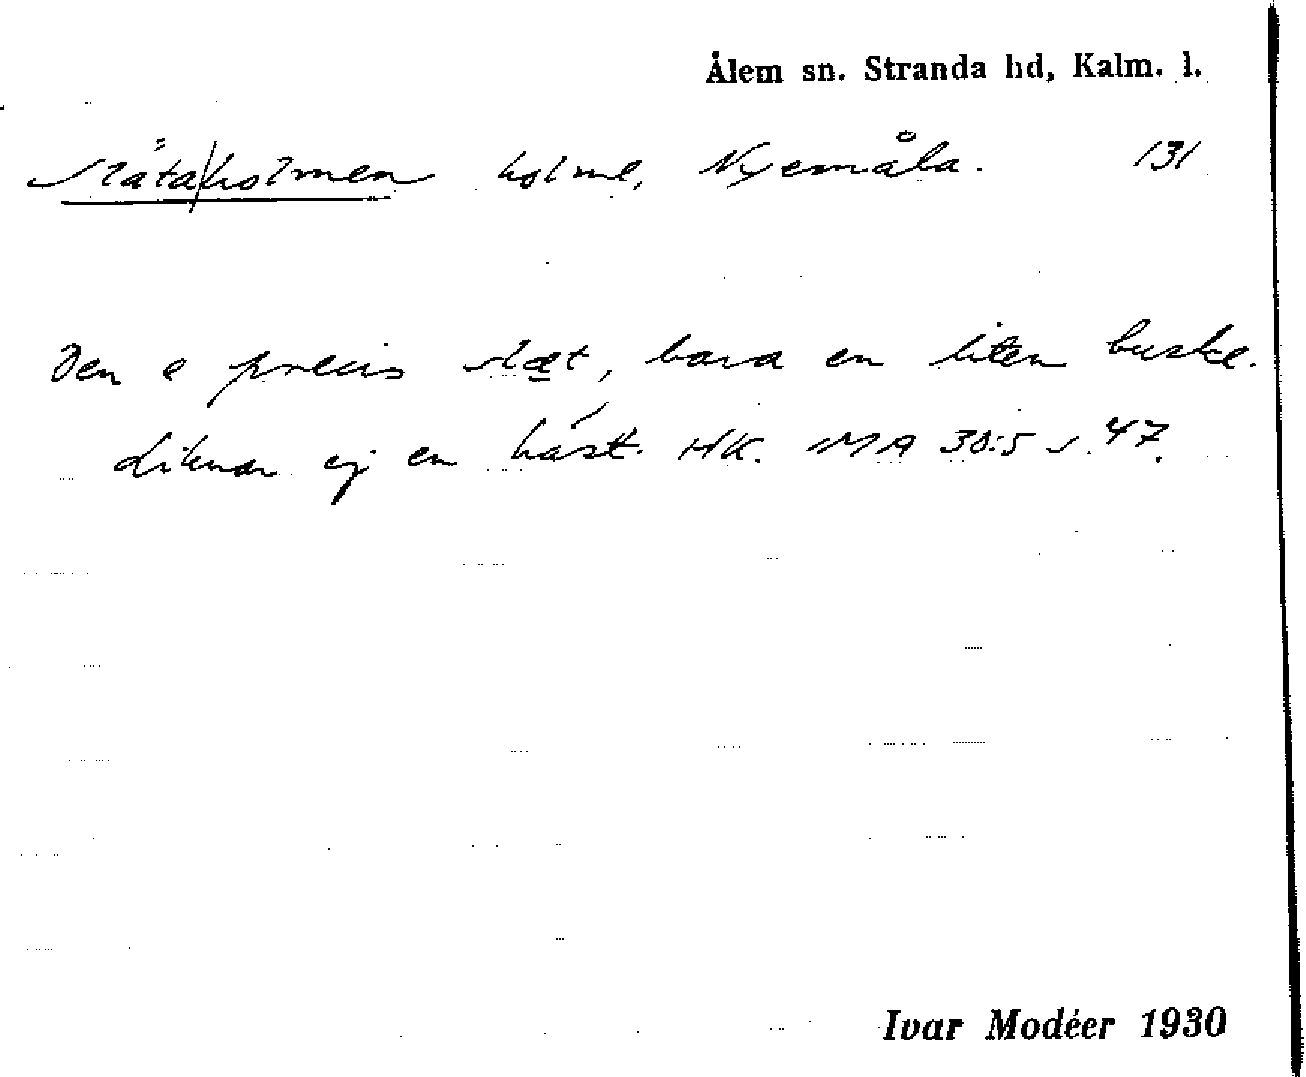 Ålem sn. Stranda hd, Kalm. l.
Släta/holmen holme, Nyemåla. 131
Den e precis slæt, bara en liten buske.
Liknar ej en häst. HK. IMA 30:5 s. 47.
Ivar Modéer 1930